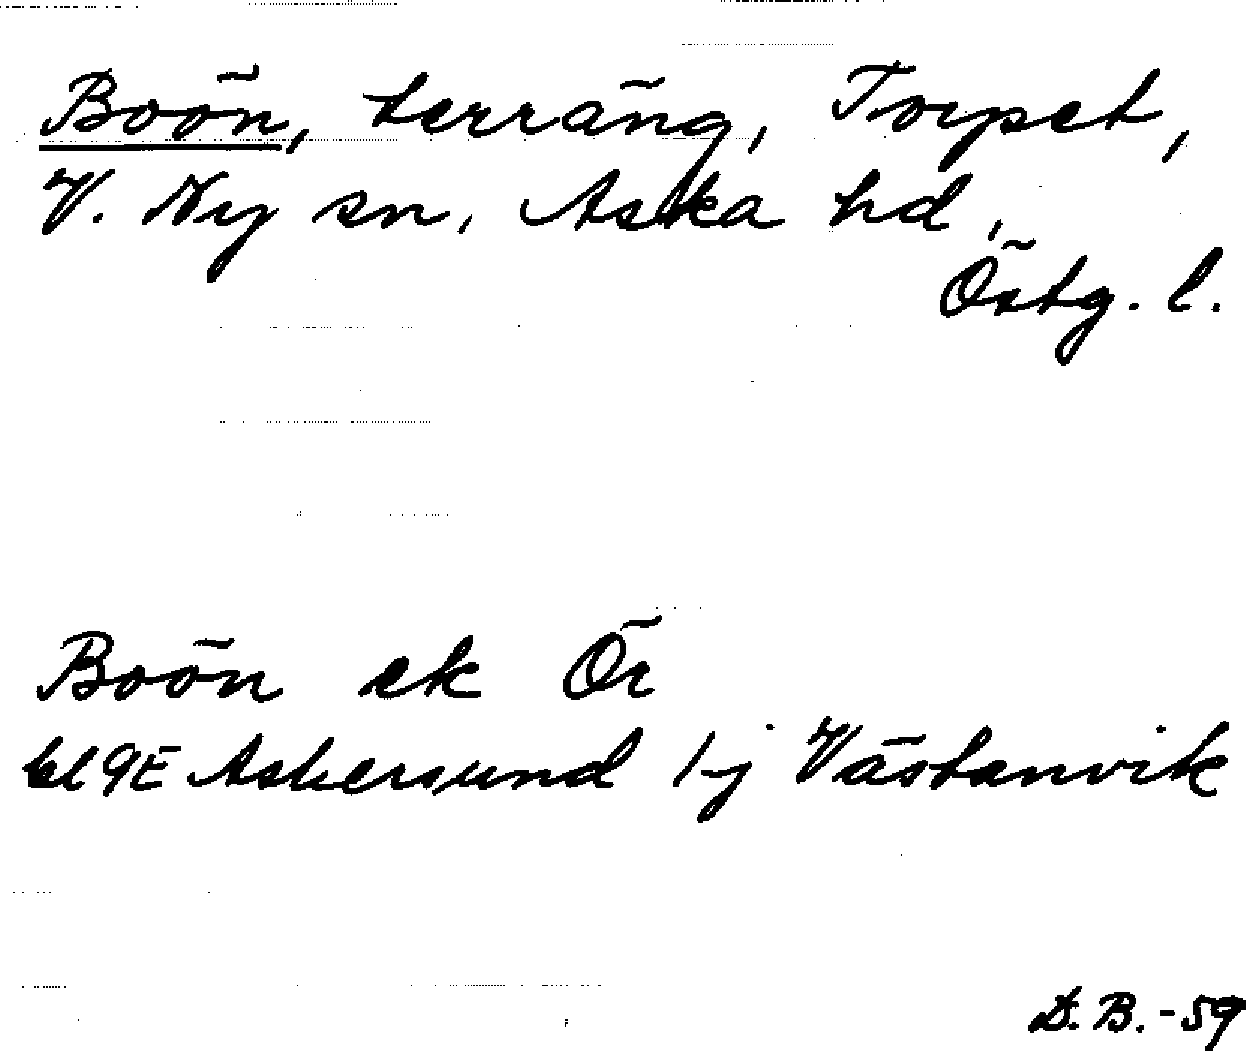 Boön, terräng, Torpet,
V. Ny sn, Aska hd,
Östg. l.
Boön ek Ör
bl 9E Askersund 1j Västanvik
D. B. -59